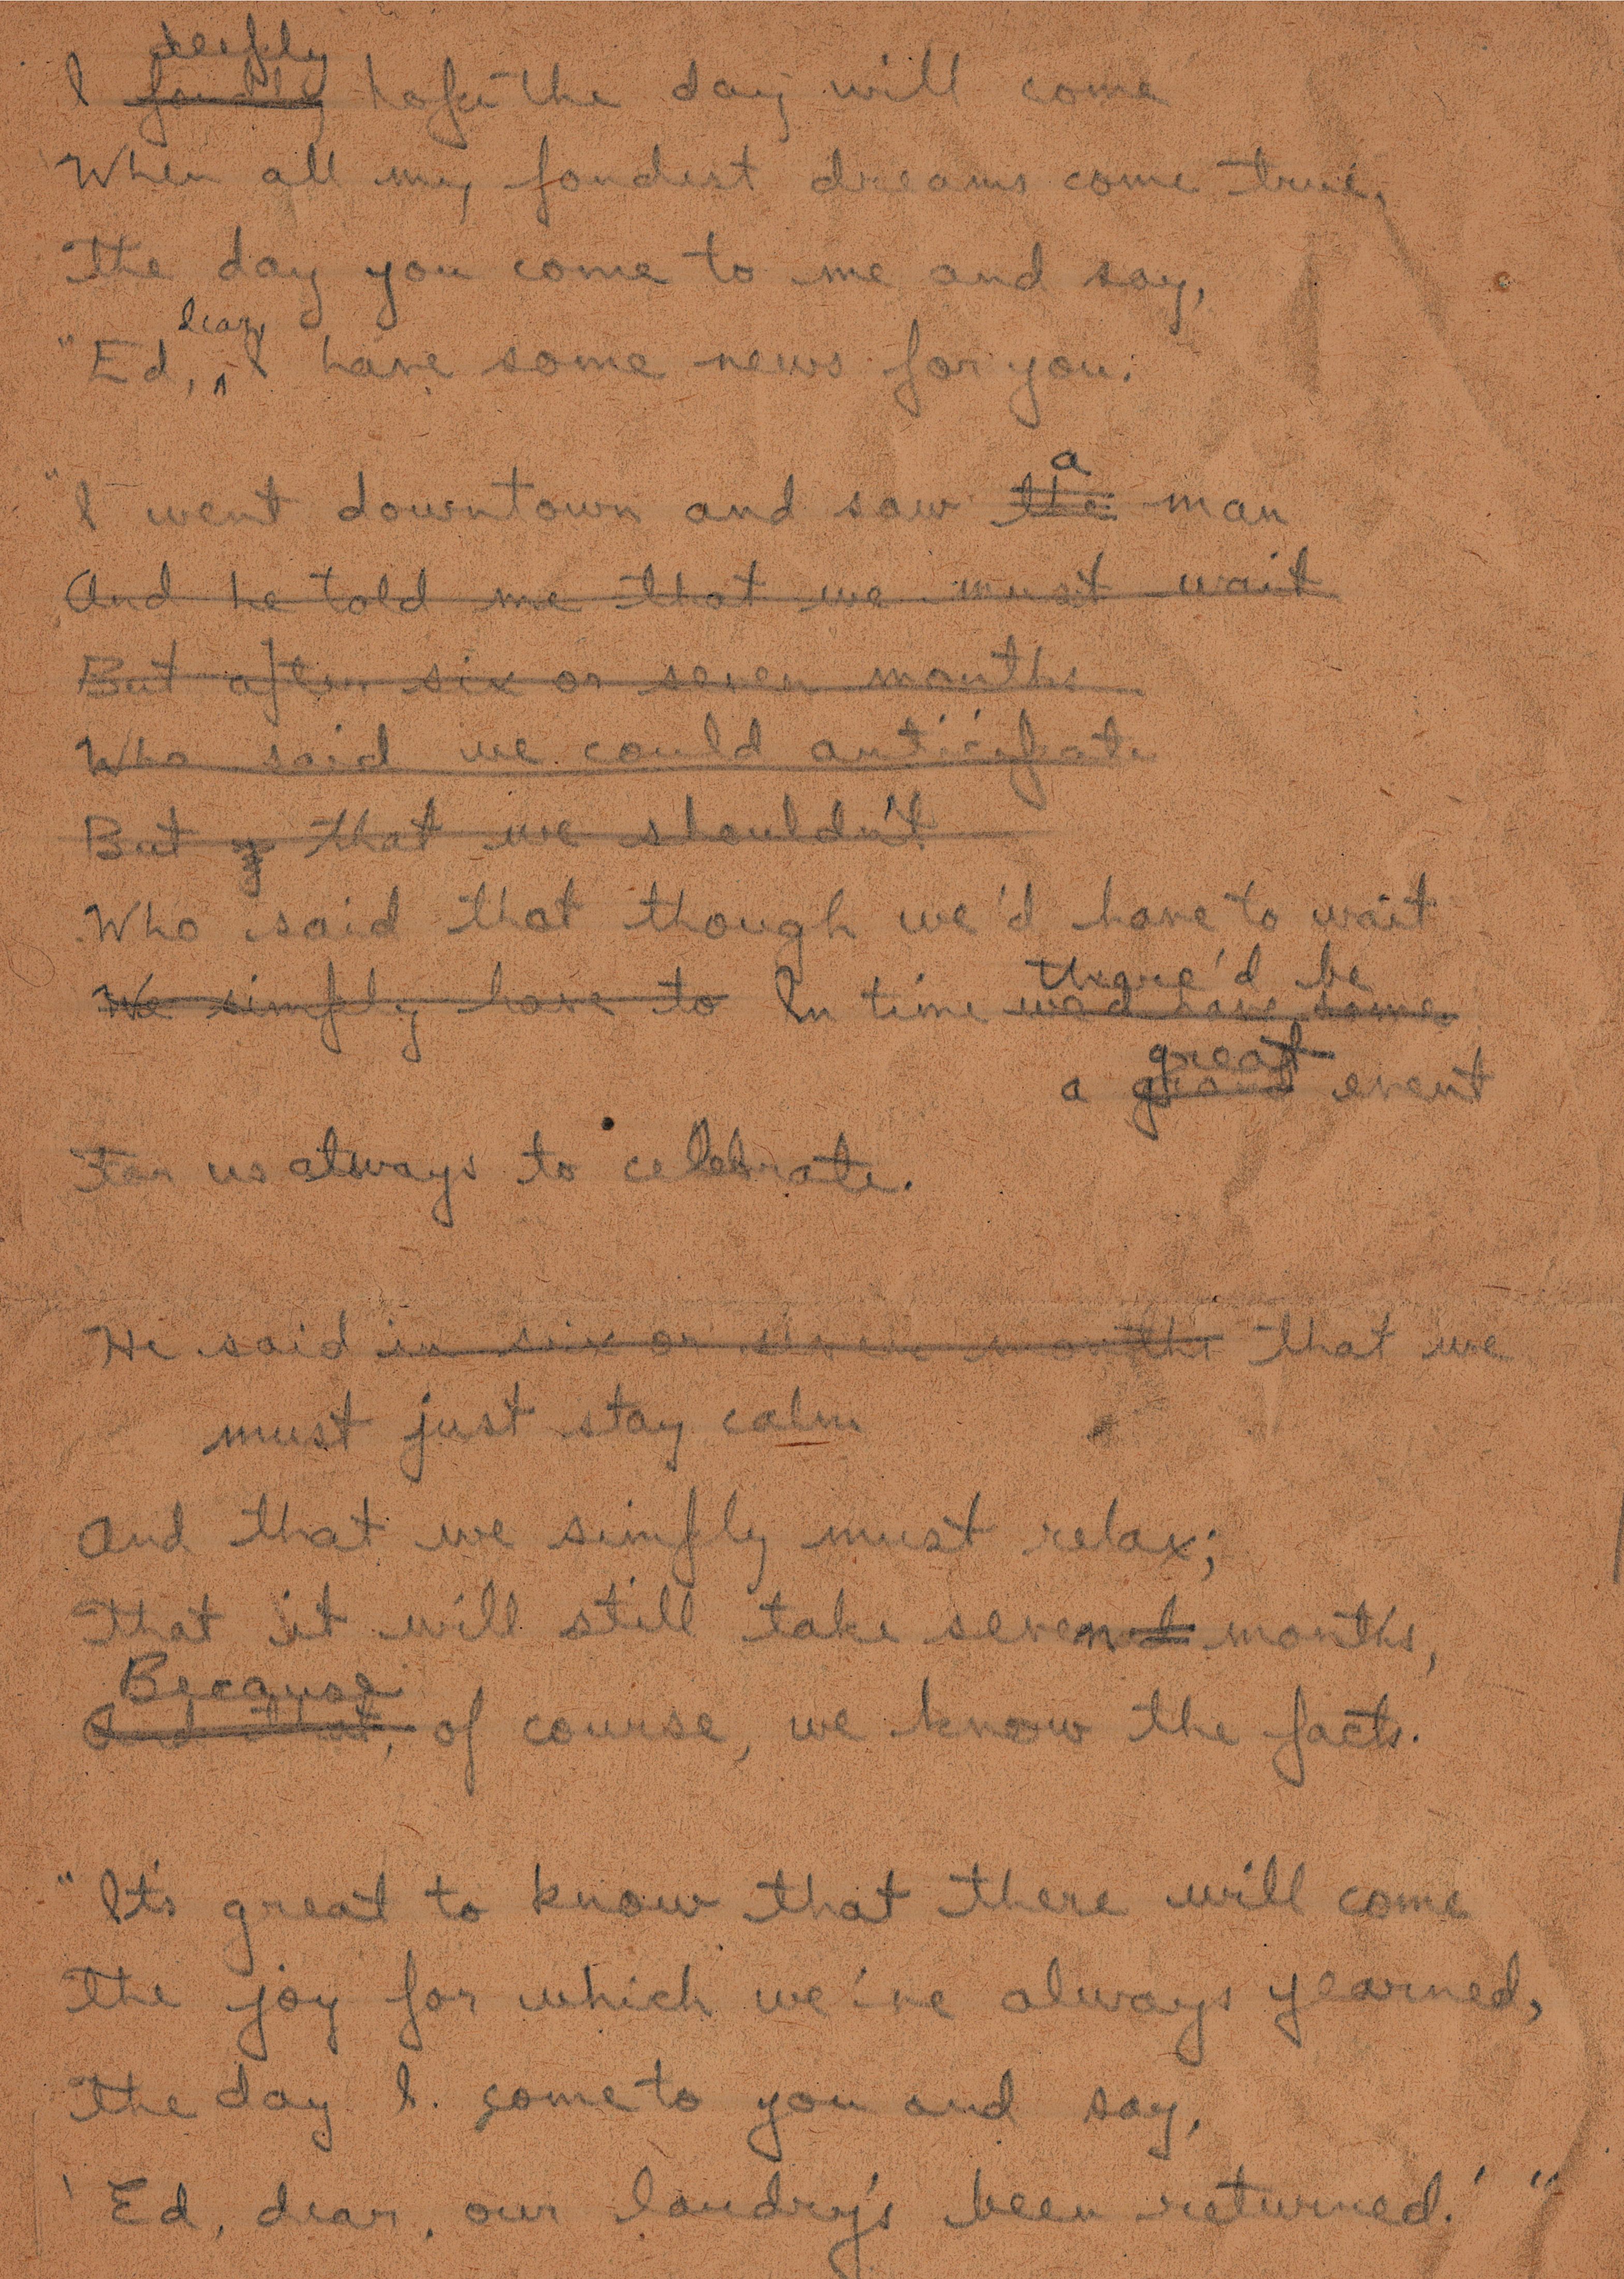 deeply
I fondly hope the day will come
When all my fondest dreams come true,
The day you come to me and say,
dear,
"Ed, ^ I have some news for you:
a
"I went downtown and saw the man
And he told me that we must wait
But after six or seven months
Who said we could anticipate
But that we shouldn't
Who said that though we'd have to wait
there'd be
We simply have to In time we'd have some
great
a grand event
For us always to celebrate.
He said in six or seven months that we
must just stay calm
And that we simply must relax;
That it will still take seven months,
Because
And that, of course, we know the facts.
"It's great to know that there will come
The joy for which we've always yearned,
The day I come to you and say,
'Ed, dear, our laundry's been returned.' "